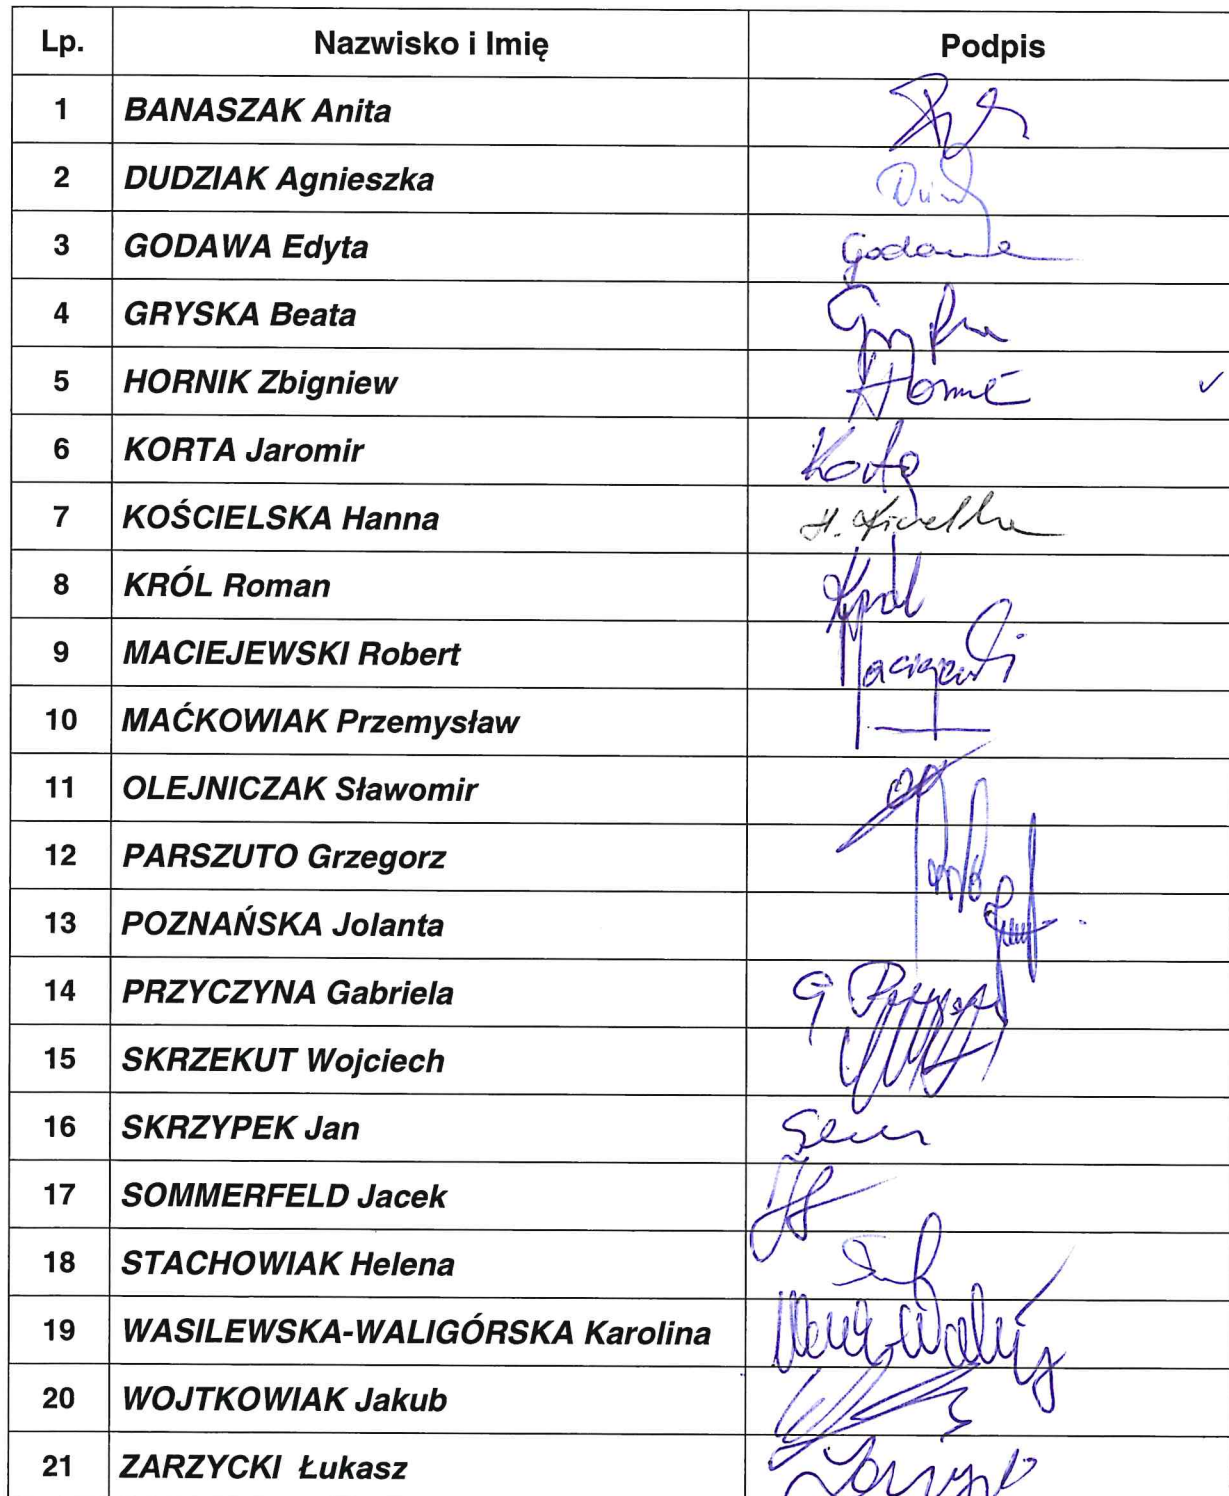 Lp. Nazwisko i Imię Podpis
1 BANASZAK Anita
2 DUDZIAK Agnieszka
3 GODAWA Edyta Godawa
4 GRYSKA Beata
5 HORNIK Zbigniew ✓
6 KORTA Jaromir Korta
7 KOŚCIELSKA Hanna H.
8 KRÓL Roman Król
9 MACIEJEWSKI Robert Maciejewski
10 MAĆKOWIAK Przemysław
11 OLEJNICZAK Sławomir
12 PARSZUTO Grzegorz
13 POZNAŃSKA Jolanta
14 PRZYCZYNA Gabriela G
15 SKRZEKUT Wojciech
16 SKRZYPEK Jan
17 SOMMERFELD Jacek
18 STACHOWIAK Helena
19 WASILEWSKA-WALIGÓRSKA Karolina
20 WOJTKOWIAK Jakub
21 ZARZYCKI Łukasz